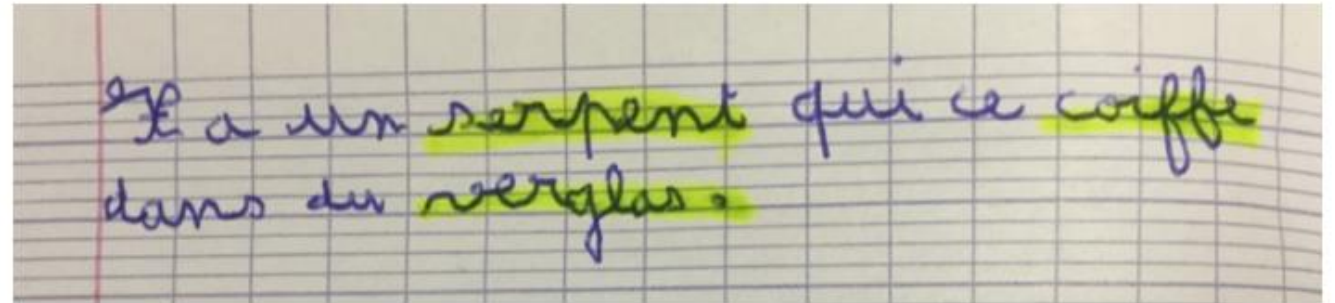 Il a un serpent qui ce coiffe
dans du verglas.